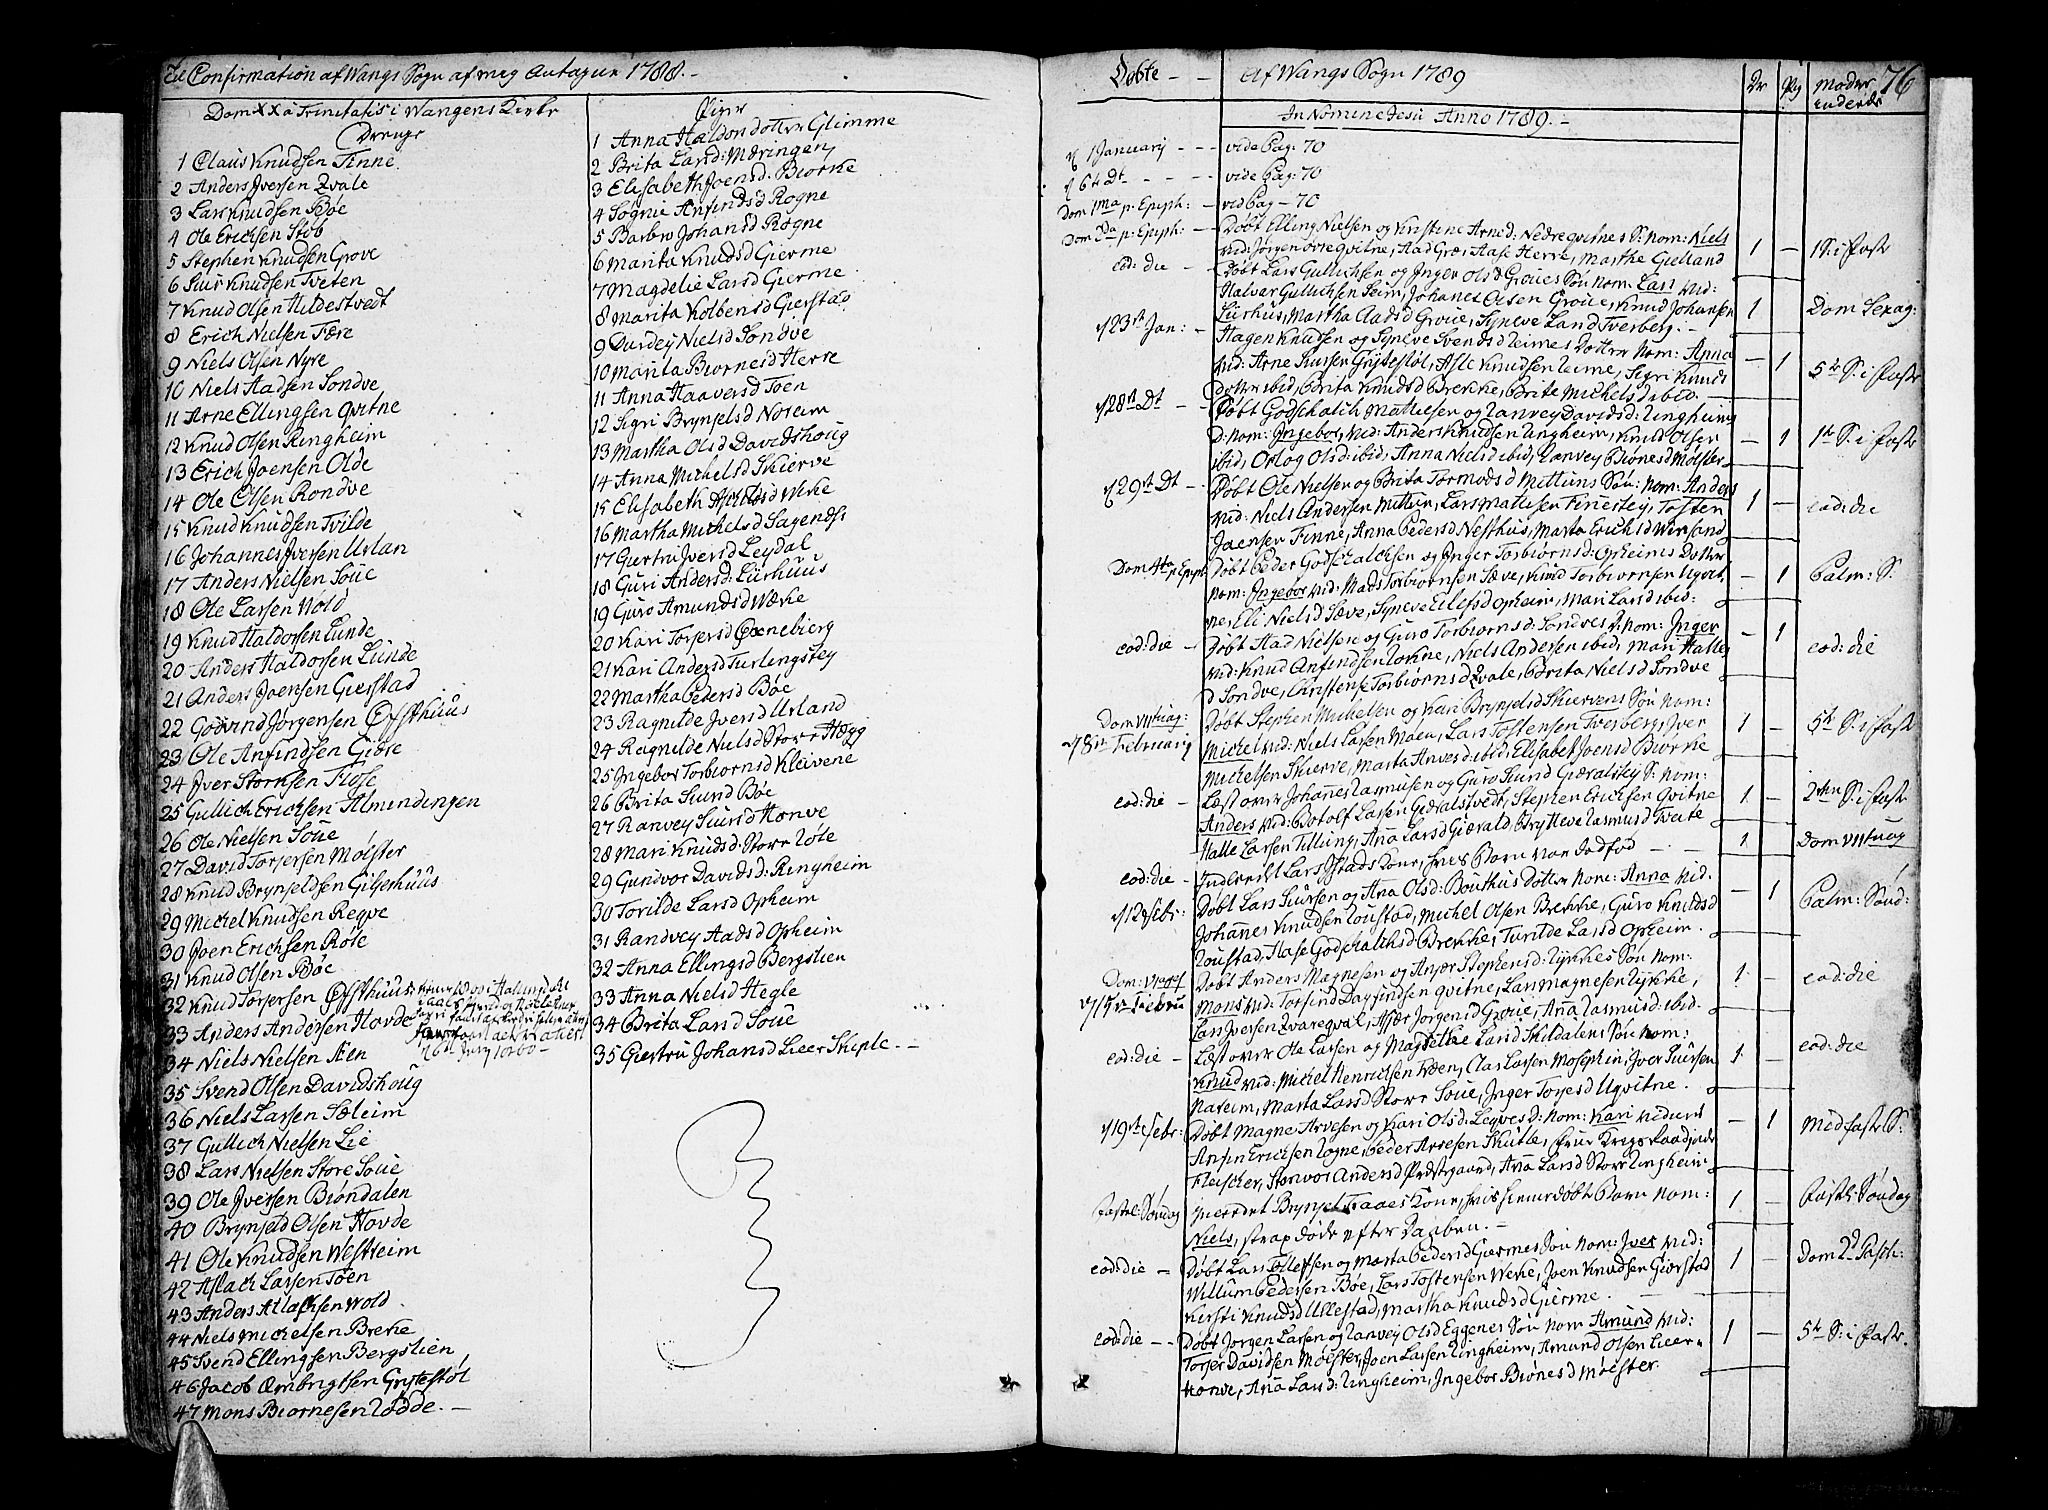 Til Confirmation af Wangs Sogn af meg Antagne 1788.-
Dom XX à Trinitatis i Wangens Kirke
Drenge
1 Claus Knudsen Finne
2 Anders Iversen Qvale
3 Lars Knudsen Bøe
4 Ole Erichsen Støb
5 Stephen Knudsen Grove
6 Siur Knudsen Tveten
7 Knud Olsen Hildestvedt
8 Erich Nielsen Fære
9 Niels Olsen Nyre
10 Niels Aadsen Sondve
11 Arne Ellingsen Qvitne
12 Knud Olsen Ringheim
13 Erich Joensen Olde
14 Ole Olsen Rondve
15 Knud Knudsen Tvilde
16 Johannes Iversen Urlan
17 Anders Nielsen Soue
18 Ole Larsen Wold
19 Knud Haldorsen Lunde
20 Anders Haldorsen Lunde
21 Anders Joensen Gierstad
22 Godvind Jørgensen Offthuus
23 Ole Anfindsen Giøse
24 Iver Storksen Flose
25 Gullich Erichsen Almendingen
26 Ole Nielsen Soue
27 David Torjersen Mølster
28 Knud Brynjeldsen Gilderhuus
29 Michel Knudsen Reqve
30 Joen Erichsen Rote
31 Knud Olsen Bøe
32 Knud Torjersen Offthuus
33 Anders Andersen Hovde
34 Niels Nielsen Æen
35 Svend Olsen Davidshoug
36 Niels Larsen Sæleim
37 Gullich Nielsen Lie
38 Lars Nielsen Store Soue
39 Ole Iversen Biøndalen
40 Brynjeld Olsen Hovde
41 Ole Knudsen Westreim
42 Aslach Larsen Tøen
43 Anders Atlachsen Wold
44 Niels Michelsen Breke
45 Svend Ellingsen Bergslien
46 Jacob Ombrigtsen Grytestøl
47 Mons Biørnesen Rødde.-
Piger
1 Anna Haldorsdotter Glimme
2 Brita Larsd: Mæringen
3 Elisabeth Joensd: Biørke
4 Sognie Anfindsd Rogne
5 Barbro Johansd Rogne
6 Marita Knudsd Gierme
7 Magdelie Larsd Gierme
8 Marita Kolbensd Gierstad
9 Durdey Nielsd Sondve
10 Marita Biørnesd Herre
11 Anna Haaversd Tøen
12 Sigri Brynjelsd Noreim
13 Martha Olsd Davidshoug
14 Anna Michelsd Skierve
15 Elisabeth Aschelsd Weke
16 Martha Michelsd Sagende
17 Giertru Iversd Leydal
18 Guri Andersd: Liirhuus
19 Guro Amundsd Wæke
20 Kari Torjersd Grenebierg
21 Kari Andersd Turlingstey
22 Martha Pedersd Bøe
23 Ragnilde Iversd Urland
24 Ragnilde Nielsd Store Hægg
25 Ingebor Torbiørnsd Kleivene
26 Brita Siursd Bøe
27 Ranvey Siursd Honve
28 Mari Knudsd: Store Rote
29 Gundvor Davidsd: Ringheim
30 Torilde Larsd Opheim
31 Randvey Aadsd Opheim
32 Anna Ellingsd Bergslien
33 Anna Nielsd Hegle
34 Brita Larsd Soue
35 Giertru Johansd Leer Skiple.-
Døbte - - Af Wangs Sogn 1789 Dr Pig Mødr 76
indledt
In Nomine Jesu Anno 1789.-
d/1 January - - - vide Pag: 70
d/6te Dt - - - - vide Pag: 70
Dom 1ma p. Epiph: - vid Pag - 70
Dom 2da p. Epiph: - Døbt Elling Nielsen og Kristine Arnsd: Nedreqvitnes S: Nom: Niels
Vid: Jørgen øvreqvitne, Aad Gro, Aase Herre, Marthe Gulland 1 - 1 S: i faste
eod: die - Døbt Lars Gullichsen og Inger Olsd Groues Søn Nom: Lars Vid:
Halvar Gullichsen Seim, Johanes Olsen Groue, Knud Johansen
Liirhus, Martha Aadsd Groue, Syneve Larsd Tverberg.- 1 Dom Sexag:
d/23de Jan: - Hagen Knudsen og Syneve Svendsd Reimes Dotter Nom: Anna
Vid: Arne Larsen Grytestøl, Asle Knudsen Reime, Sigri Knuds
Dotter ibid, Brita Knudsd Brekke, Brite Michelsd ibid.- - 1 5te S: i faste
d/28de Dt - - Døbt Godschalch Matiesen og Ranvey Davidsd: Ringheims
D: Nom: Ingebor, Vid: Anders Knudsen Ringheim, Knud Olsen
ibid, Ortog Olsd: ibid, Anna Nielsd ibid, Ranvey Biønesd Mølster - 1 1te S: i faste
d/29de Dt - Døbt Ole Nielsen og Brita Tormodsd Mittuns Søn: Nom: Anders
Vid: Niels Andersen Mittun, Lars Matiesen Finnesley, Tosten
Jaensen Finne, Anna Pedersd Nesthus, Marta Erichsd Winsand 1 - eod: die
Dom 4ta p. Epiph: Døbt Peder Godschalchsen og Inger Torbiørnsd: Opheims Dotter
Nom: Ingebor Vid: Mads Torbiørnsen Sæve, Knud Torbiørnsen Uqvit
ne, Eli Nielsd Sæve, Syneve Eilefsd Opheim, Mari Larsd ibid - 1 Palm: S.
eod: die - Døbt Aad Nielsen og Guro Torbiørnsd: Sondves D: Nom: Inger
Vid: Knud Anfindsen Rokne, Niels Andersen ibid, Mari Halle
d Sondve, Christense Torbiørnsd Qvale, Brita Nielsd Sondve - 1 eod: die
Dom Døbt Stephen Michelsen og Kari Brynjelsd Skiervens Søn Nom:
d/8de February Michel Vid: Niels Larsen Møen, Lars Tostensen Tverberg, Iver
Michelsen Skierve, Marta Anvesd ibid, Elisabet Joensd Biørke 1 - 5te S: i faste
eod: die - Læst over Johannes Rasmusen og Guro Siursd Gieralstey S: Nom:
Anders Vid: Botolf Larsen Gieralstvedt, Stephen Erichsen Qvitne
Halle Larsen Tillung, Ana Larsd Gierald, Brytteve Rasmusd Tveite 1 - 2den S: i faste
eod: die - Inderedet Lars Istads Kone, hvis Barn var Dødfød - - 1 Dom
d/12 Febr: Døbt Lars Siursen og Ana Olsd: Bouthus Dotter Nom: Anna Vid.
Johannes Knudsen Roustad, Michel Olsen Brekke, Guro Knudsd
Roustad, Aase Godschalchsd Brekke, Turilde Larsd Opheim. - 1 Palm: Sønd:
Dom: Døbt Anders Magnesen og Anfær Stephensd: Rykkes Søn Nom:
d/15de Febru Mons Vid: Torfind Dagfindsen Qvitne, Lars Magnesen Rykke,
Lars Iversen Qvareqval, Asfær Jorgensd Groue, Ana Rasmusd: ibid. 1 - eod: die
eod: die - Læst over Ole Larsen og Magdelie Larsd Skildalens Søn Nom:
Knud Vid: Michel Henrichsen Træen, Clas Larsen Mosephin, Iver Siursen
Nareim, Marta Larsd Store Soue, Inger Torjesd Uqvitne. 1 - eod: die
d/19de Febr: Døbt Magne Arvesen og Kari Olsd: Leqves D: Nom: Kari
Anfin Erichsen Rogne, Peder Arvesen Skutle, Frue Krigs Raadinde
Fleischer, Storvor Andersd Præstgaard, Ana Larsd Store Ringheim - 1 Midfaste S:
fastel: Søndag Inderedet Brynjel Traaes Kone, hvis hiemedøbt Barn Nom:
Niels, strax døde efter Daaben.- 1 - fastel: Søndag
eod: die - Døbt Lars Tolleffsen og Marta Pedersd Giermes Søn Nom: Iver Vid:
Willum Pedersen Bøe, Lars Tostensen Weke, Joen Knudsen Gierstad
Kersti Knudsd Ullestad, Martha Knudsd Gierme. 1 - Dom 2d Pasch:
eod: die - - Døbt Jorgen Larsen og Ranvey Olsd Eggenes Søn Nom Amund Vid:
Torjer Davidsen Mølster, Joen Larsen Ringheim, Amund Olsen Leer
Honve, Ana Larsd: Ringheim, Ingebor Biønesd Mølster. 1 - 5te S: i faste.